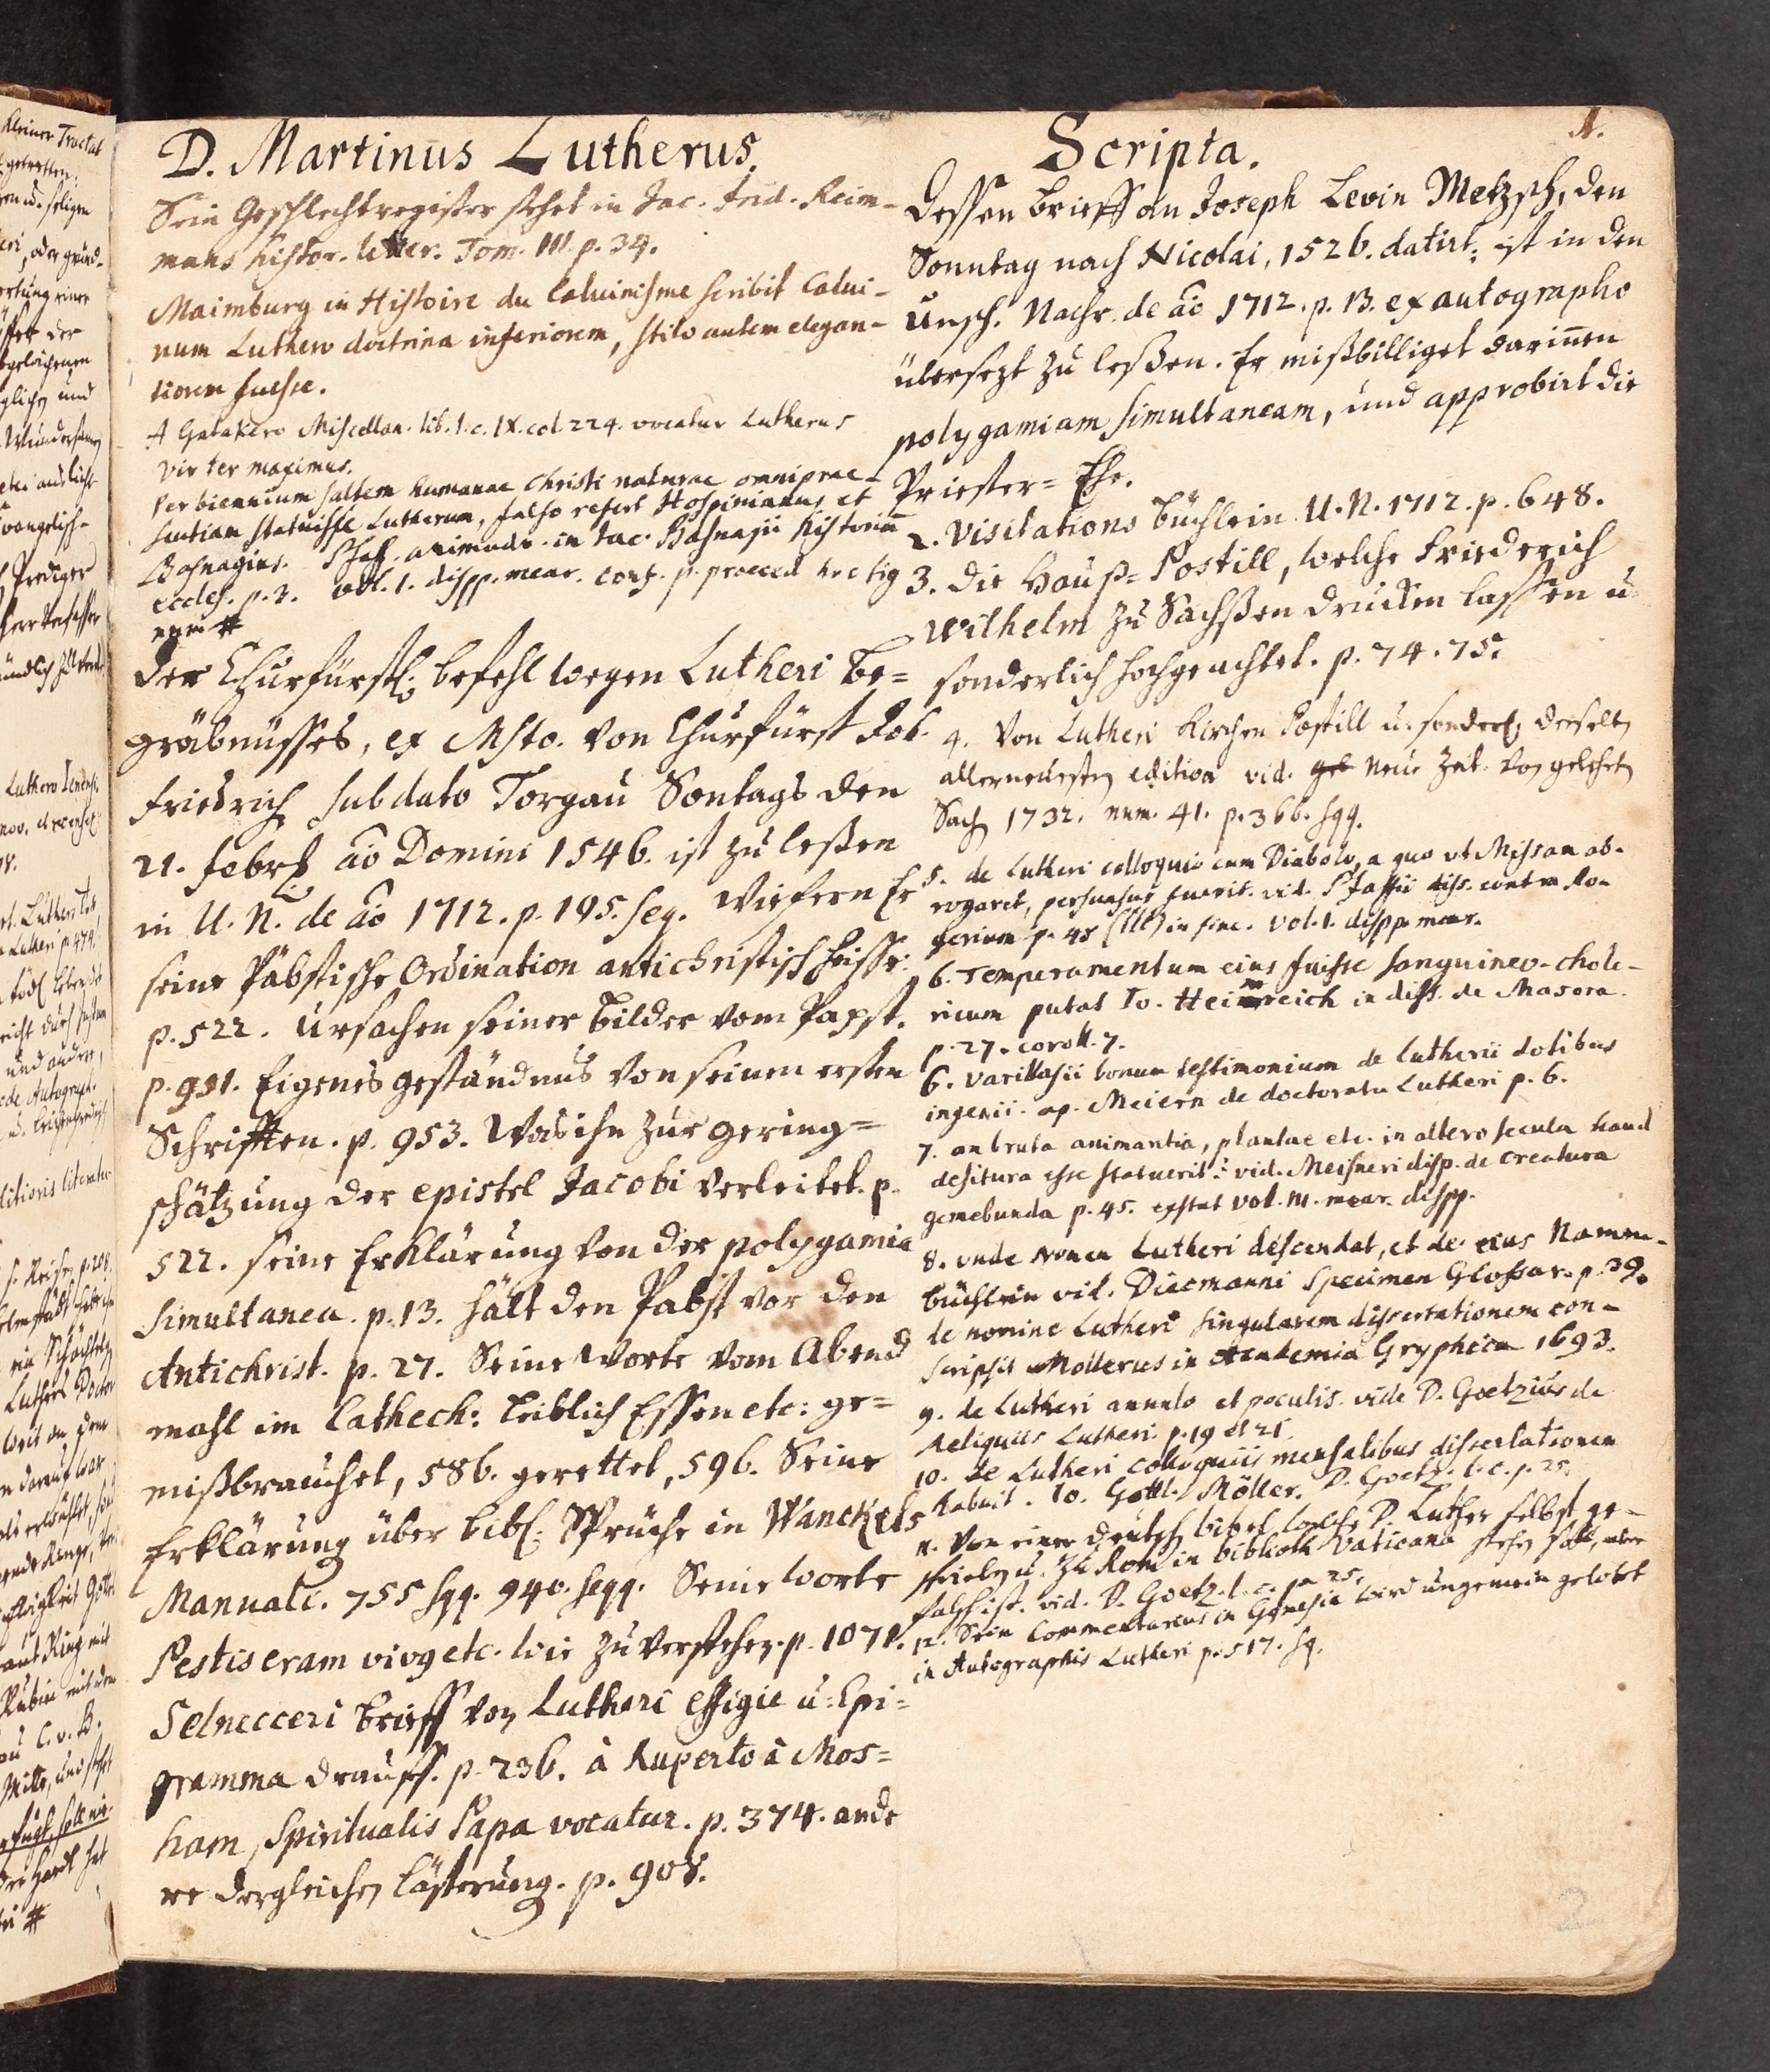 D. Martinus Lutherus.
Sein Geschlechtregister stehet in Jac. Frid. Reim-
mans histor. liter. Tom. III. p. 34.
Maimburg in Histoire du Calvinisme scribit Calvi-
num Luthero doctrina inferiorem, stilo autem elegan-
tiorem fuisse.
A Gatakero Miscellan. lib. 1. c. IX. col. 224. vocatur Lutherus
vir ter maximus.
Per biennium saltem humanae Christi naturae omniprae-
sentiam statuisse Lutherum, falso refert Hospinianus et
Basnagius. Pfaff. animadv. in Jac. Basnagii historiam
eccles. p. 3. vol. 1. disp. mear. conf. p. praeced.
num #
Der Churfürstl: befehl wegen Lutheri be=
gräbnüsses, ex Msto. von Churfürst Joh.
Friedrich sub dato Torgau Sontags den
21. Febr. ao Domini 1546. ist zu leßen
in U. N. de ao 1712. p. 195. seq. Wiefern Er
seine Päbstische Ordination antichristisch heisse.
p. 522. Ursachen seiner bilder vom Papst.
p. 951. Eigenes geständnus von seinen ersten
Schrifften. p. 953. Was ihn zur gering=
schätzung der epistel Jacobi verleitet. p.
522. seine Erklärung von der polygamia
simultanea. p. 13. hält den Pabst vor den
Antichrist. p. 27. Seine Worte vom Abend
mahl im Catech: leiblich Essen etc: ge=
mißbrauchet, 586. gerettet, 596. Seine
Erklärung über bibl: Sprüche in Wanckels
Manuali. 755 sqq. 940. seqq. Seine worte
Pestis eram vivus etc. wie zu verstehen. p. 1071.
Selnecceri brieff von Lutheri effigie u. Epi=
gramma drauff. p. 236. à Ruperto à Mos=
ham, Spiritualis Papa vocatur. p. 374. ande
re dergleichen lästerung. p. 908.
Scripta.
1.
Dessen brieff an Joseph Levin Metzsch, den
Sonntag nach Nicolai, 1526. datirt, ist in den
Unsch. Nachr. de ao 1712. p. 13. ex autographo
übersezt zu leßen. Er mißbilliget darinnen
polygamiam simultaneam, und approbirt die
Priester=Ehe.
2. Visitations büchlein U. N. 1712. p. 648.
3. Die Hauß=Postill, welche Friederich
Wilhelm zu Sachßen drucken lassen u
sonderlich hochgeachtet. p. 74. 75.
4. Von Lutheri Kirchen Postill u. sonderl. derselben
allerneuesten edition vid. Neue Zeit. von gelehrten
Sachen 1732. num. 41. p. 366. sqq.
5. de Lutheri colloquio cum Diabolo, a quo ut Missam ab-
rogaret, persuasus fuerit. vid. Pfaffii diss. contra Ro-
gerium p. 48 in fine. vol. 1. disp. mear.
6. Temperamentum eius fuisse sanguineo-chole-
ricum putat Jo. Heinreich in diss. de Masora
p. 27. coroll. 7.
6. Varillasii bonum testimonium de Lutheri dotibus
ingenii. ap. Meiern de doctoratu Lutheri p. 6.
7. an bruta animantia, plantae etc. in altero seculo haud
desitura esse statuerit? vid. Meisneri disp. de creatura
gemebunda p. 45. exstat vol. III. mear. disp.
8. unde nomen Lutheri descendat, et de eius Namen-
büchlein vid. Diecmanni Specimen Glossar. p. 39.
de nomine Lutheri singularem dissertationem con-
scripsit Mollerus in Academia Gryphica 1693.
9. de Lutheri annulo et poculis vide D. Goetzius de
Reliquiis Lutheri p. 19 et 21.
10. de Lutheri colloquiis mensalibus dissertationem
habuit. Jo. Gottl. Möller. D. Goetz. l. c. p. 25.
11. Von einer deutsch bibel welche D. Luther selbst ge-
schrieben u. zu Rom in biblioth Vaticana stehen soll, aber
falsch ist. vid. D. Goetz. l. c. p. 25.
12. Sein Commentarius in Genesin wird ungemein gelobet
in Autographis Lutheri p. 517. sq.
2